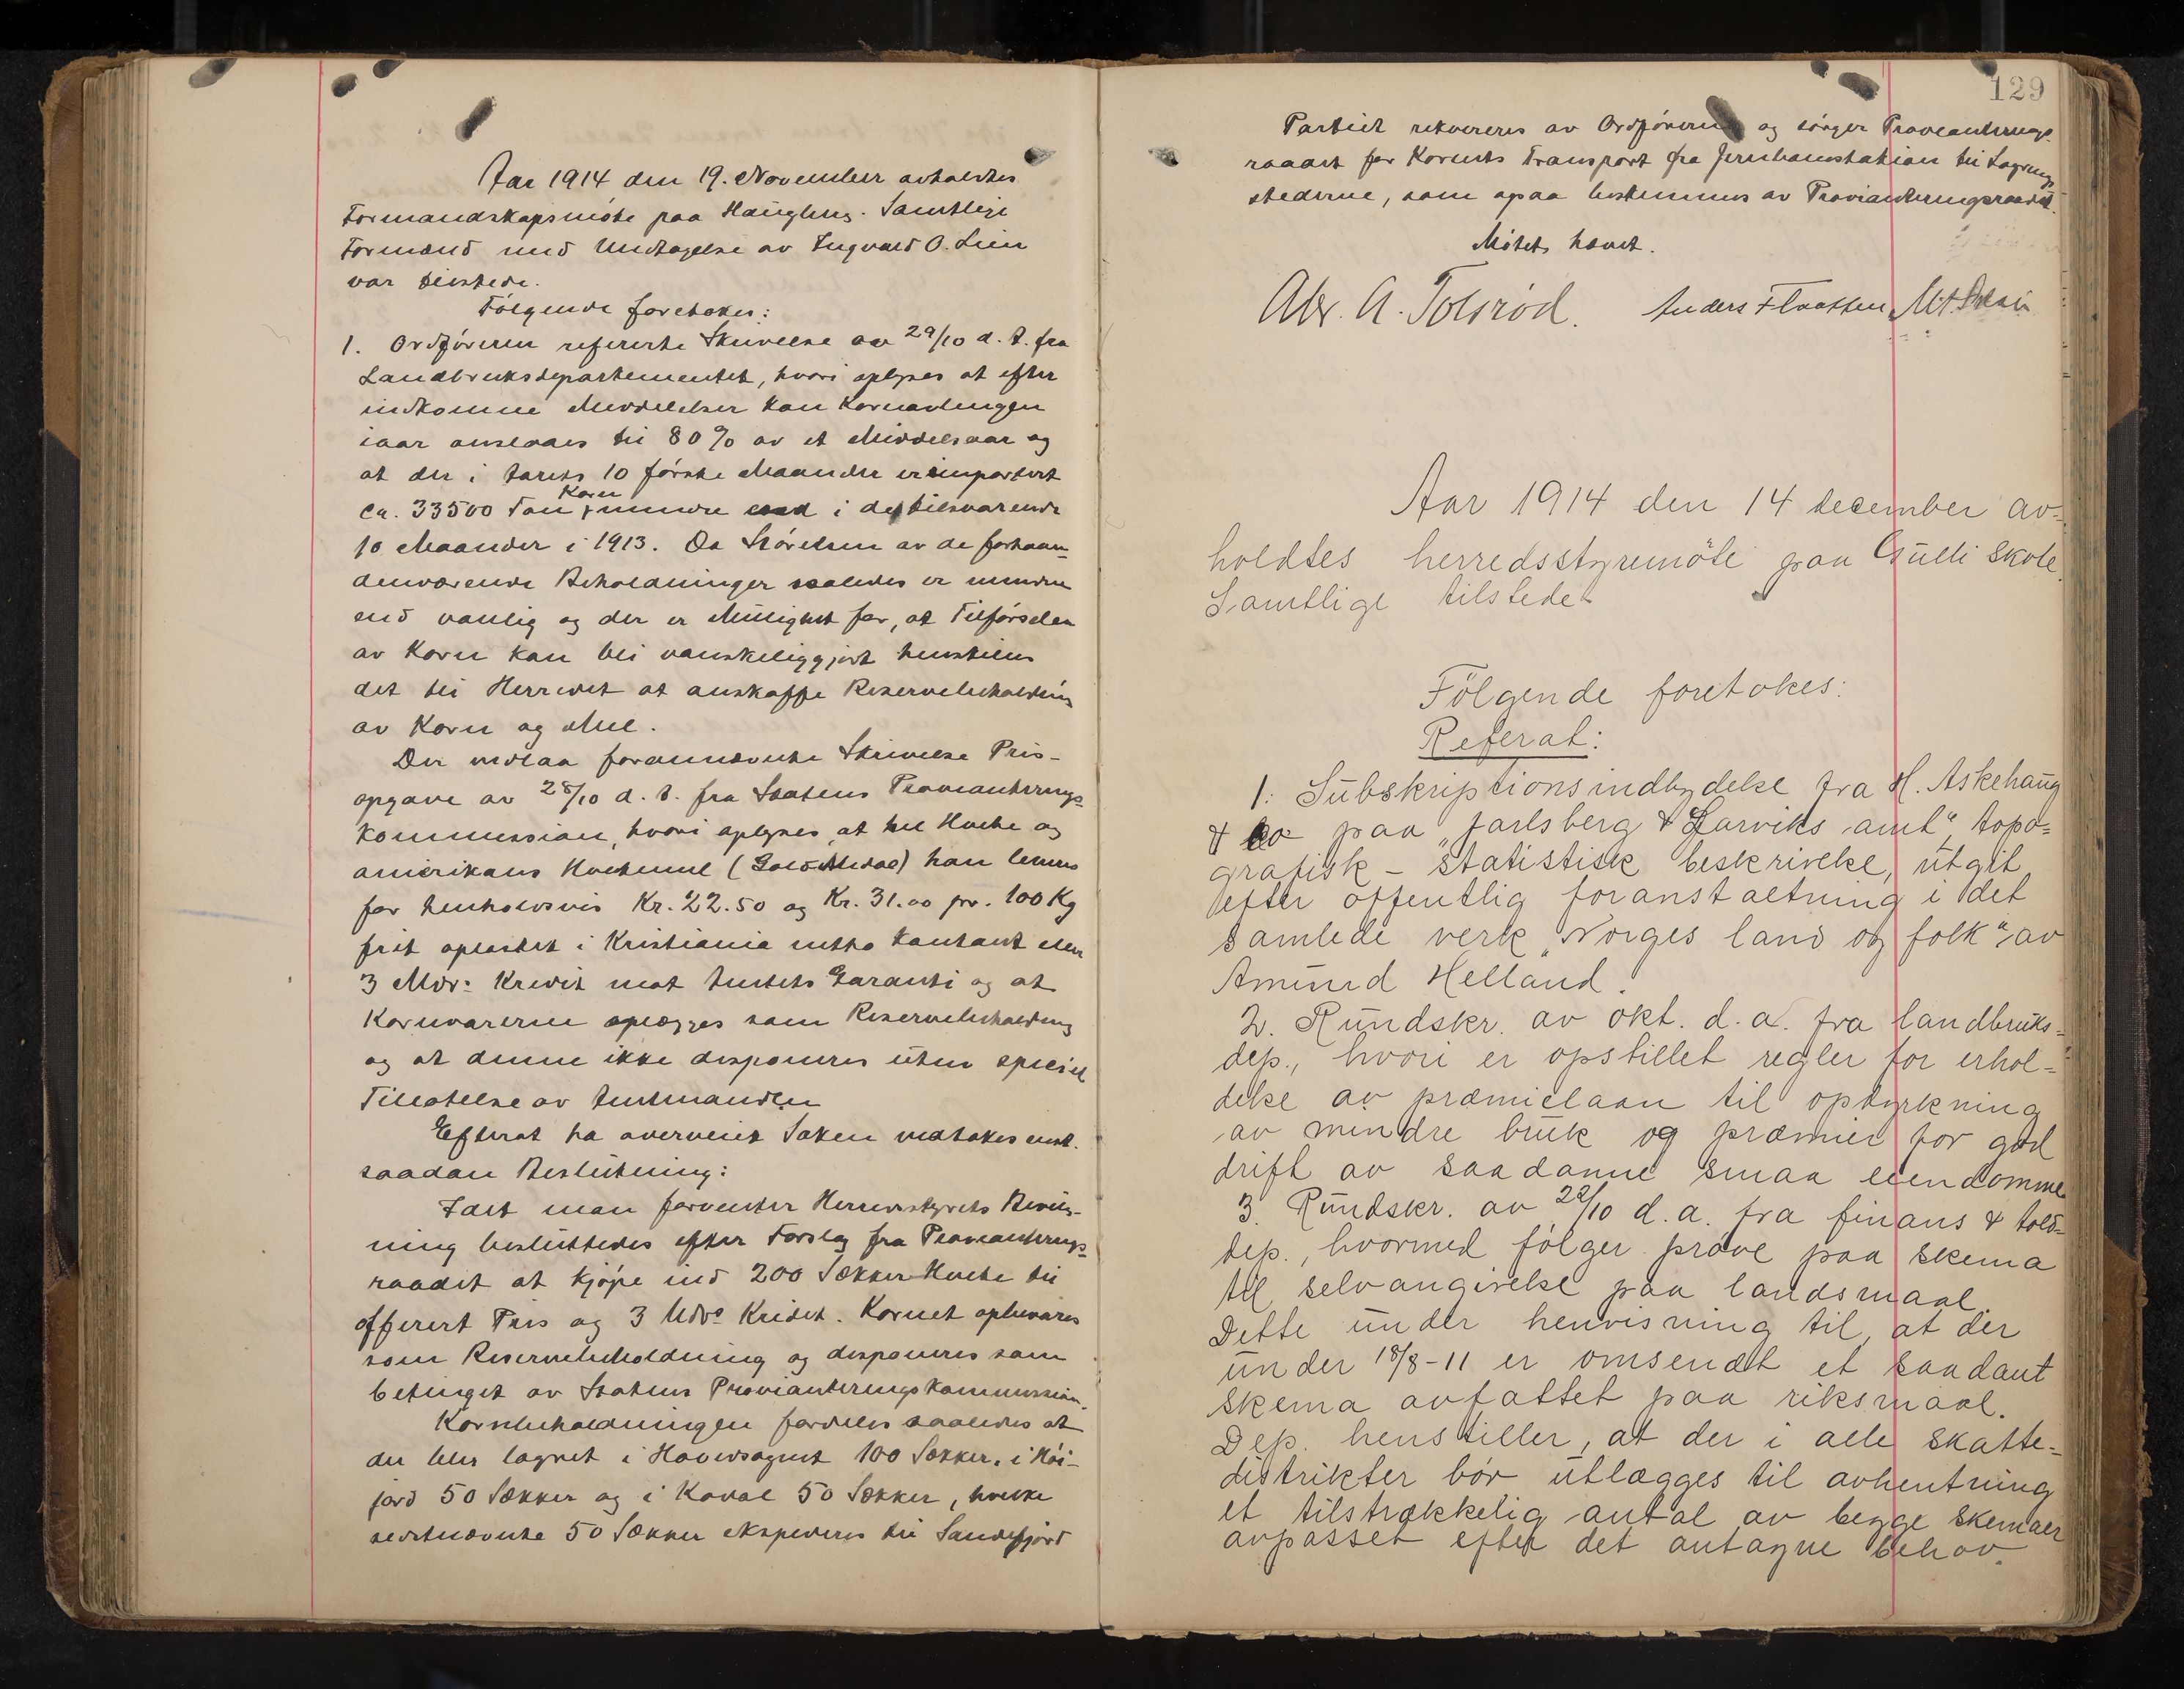 Aar 1914 den 19. November avholdtes
Formandskapsmöte paa Haugberg. Samtlige
Formænd med Undtagelse av Ingvald O. Lien
var tilstede.
Følgende foretokes:
1. Ordføreren refererte Skrivelse av 29/10 d. A. fra
Landbruksdepartementet, hvori oplyses at efter
indkomne Meddelelser kan Kornavlingen
iaar anslaaes til 80% av et Middelsaar og
at der i Aarets 10 første Maaneder er importert
Korn
ca. 33500 Ton mindre end i de tilsvarende
10 Maaneder i 1913. Da Størelsen av de forhaan-
denværende Beholdninger saaledes er mindre
end vanlig og der er Mulighet for, at Tilførselen
av Korn kan bli vanskeliggjort henstilles
det til Herredet at anskaffe Reservebeholdning
av Korn og Mel.
Der vedlaa forannævnte Skrivelse Pris-
opgave av 28/10 d. A. fra Statens Provianterings-
kommission, hvori oplyses, at hel Hvete og
amerikans Hvetemel (Gold Medal) kan leveres
for henholdsvis Kr. 22.50 og Kr. 31.00 pr. 100 Kg
frit oplastet i Kristiania netto kontant eller
3 Mdr: Kredit mot Amtets Garanti og at
Kornvarerne oplægges som Reservebeholdning
og at denne ikke disponeres uten speciel
Tillatelse av Amtmanden
Efterat ha overveiet Saken vedtokes enst.
saadan Beslutning:
Idet man forventer Herredsstyrets Bevilg-
ning besluttedes efter Forslag fra Provianterings-
raadet at kjøpe ind 200 Sækker Hvete til
offerert Pris og 3 Mdrs Kredit. Kornet opbevares
som Reservebeholdning og disponeres som
betinget av Statens Provianteringskommission.
Kornbeholdningen fordeles saaledes at
der blir lagret i Hovedsognet 100 Sækker, i Høi-
jord 50 Sækker og i Kodal 50 Sækker, hvilke
sidstnævnte 50 Sækker ekspederes til Sandefjord
129
Partiet rekvireres av Ordføreren og sørger Provianterings-
raadet for Kornets Transport fra Jernbanestation til Lagrings
stederne, som ogsaa bestemmes av Provianteringsraadet.
Møtet hævet.
Abr. A. Tolsrød. Anders Flaatten
Aar 1914 den 14 december av-
holdtes herredsstyremöte paa Gulli skole.
Samtlige tilstede.
Følgende foretokes:
Referat:
1: Subskriptionsindbydelse fra H. Askehaug
& co paa "Jarlsberg & Larviks amt", topo-
grafisk – statistisk beskrivelse, utgit
efter offentlig foranstaltning i det
samlede verk "Norges land og folk", av
Amund Helland.
2. Rundskr. av okt. d. a. fra landbruks-
dep., hvori er opstillet regler for erhol-
delse av præmielaan til opdyrkning
av mindre bruk og præmier for god
drift av saadanne smaa eiendomme
3. Rundskr. av 22/10 d. a. fra finans & told-
dep., hvormed følger prøve paa skema
til selvangivelse paa landsmaal.
Dette under henvisning til, at der
under 18/8-11 er omsendt et saadant
skema avfattet paa riksmaal.
Dep. henstiller, at der i alle skatte-
distrikter bør utlægges til avhentning
et tilstrækkelig antal av begge skemaer
avpasset efter det antagne behov.